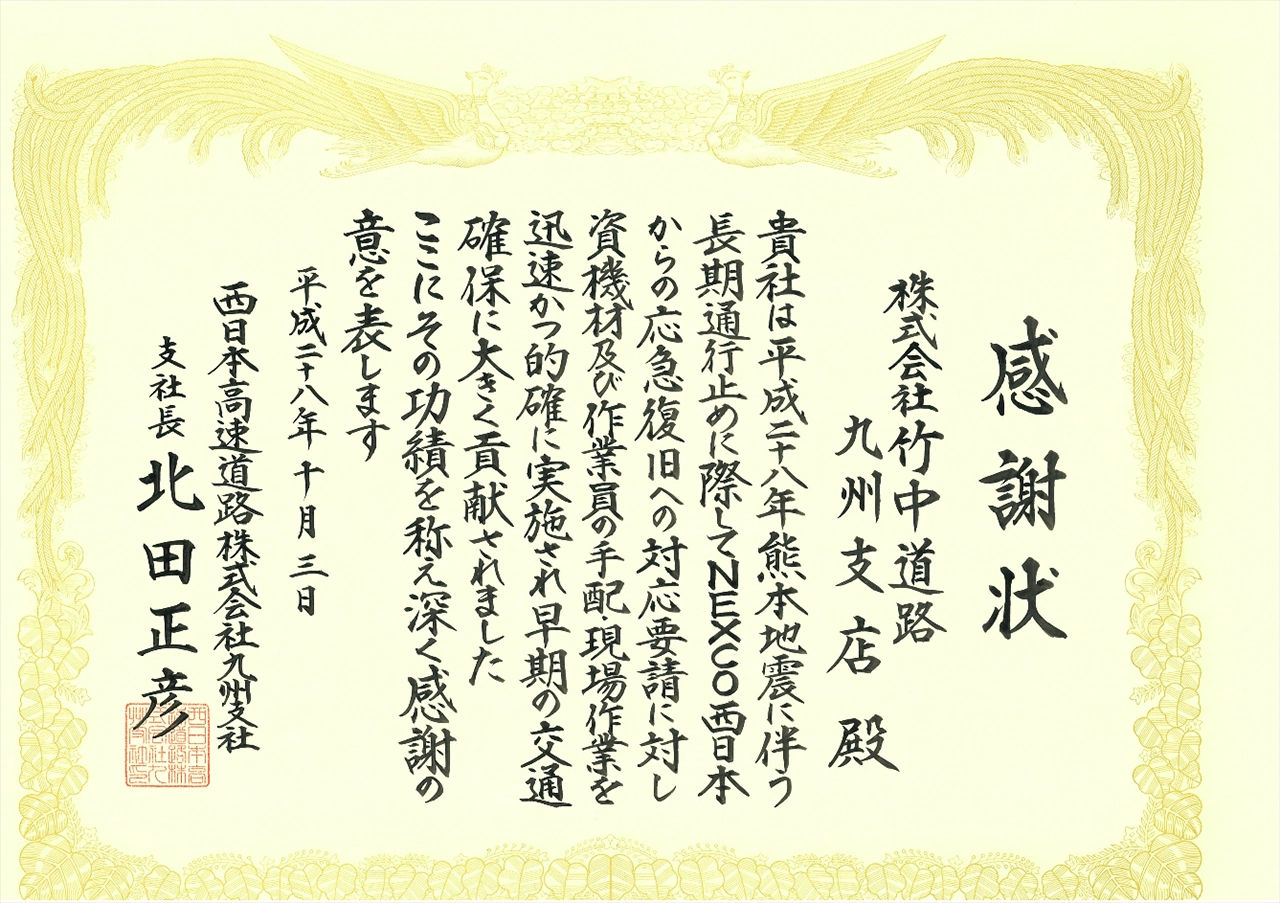 感謝状
株式会社竹中道路
九州支店 殿
貴社は平成二十八年熊本地震に伴う
長期通行止めに際してNEXCO西日本
からの応急復旧への対応要請に対し
資機材及び作業員の手配・現場作業を
迅速かつ的確に実施され早期の交通
確保に大きく貢献されました
ここにその功績を称え深く感謝の
意を表します
平成二十八年十月三日
西日本高速道路株式会社九州支社
支社長 北田正彦